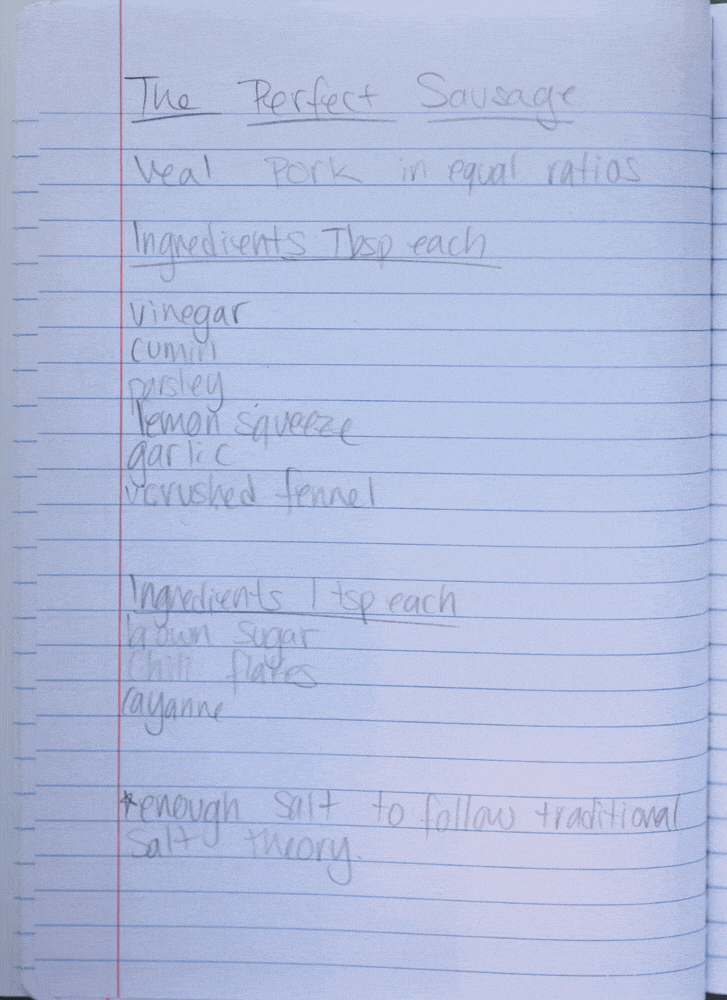 The Perfect Sausage
Veal Pork in equal ratios
Ingredients Tbsp each
vinegar
cumin
parsley
lemon squeeze
garlic
crushed fennel
Ingredients 1 tsp each
brown sugar
Chili flakes
Cayanne
*enough salt to follow traditional
salt theory.